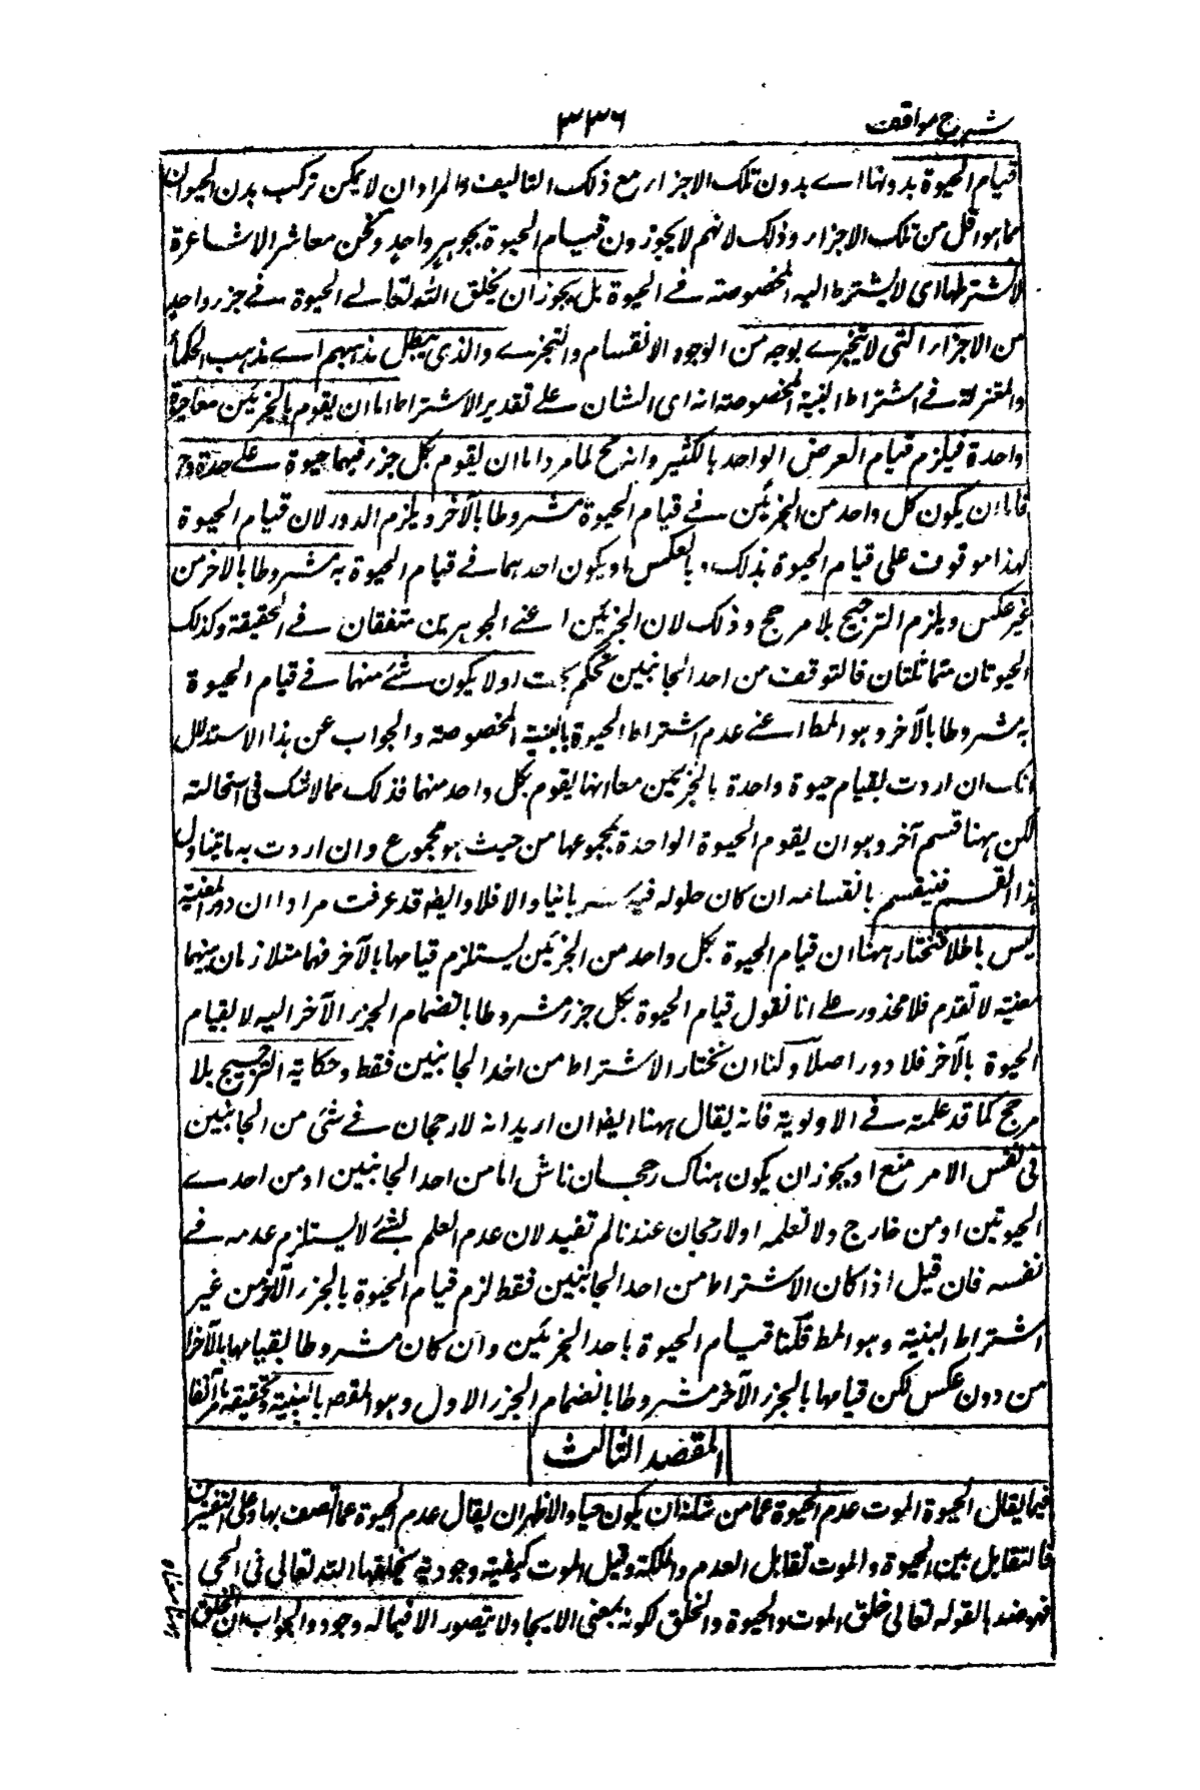 شرح مواقف
٣٣٦
قيام الحيوة بدونها اے بدون تلك الاجزاء مع ذلك التاليف والمراد ان لا يمكن تركب بدن الحيوان
مما هو اقل من تلك الاجزاء وذلك لانهم لا يجوزون قيام الحيوة بجوهر واحد ونحن معاشر الاشاعرة
لا نشترطها اى لا نشترط البنية المخصوصة فے الحيوة بل يجوز ان يخلق الله تعالے الحيوة فے جزء واحد
من الاجزاء التى لا تتجزے بوجه من الوجوه الانقسام والتجزے والذى يبطل مذهبهم اے مذهب الحكماء
والمعتزلة فے اشتراط البنية المخصوصة انه اى الشان علے تقدير الاشتراط اما ان يقوم بالجزئين معا حيوة
واحدة فيلزم قيام العرض الواحد بالكثير وانه مح لما مر واما ان يقوم بكل جزء فيهما حيوة علے حدة وح
فاما ان يكون كل واحد من الجزئين فے قيام الحيوة مشروطا بالآخر ويلزم الدور لان قيام الحيوة
بهذا موقوف على قيام الحيوة بذلك وبالعكس او يكون احدهما فے قيام الحيوة به مشروطا بالآخر من
غير عكس ويلزم الترجيح بلا مرجح وذلك لان الجزئين اعنے الجوهرين متفقان فے الحقيقة وكذلك
الحيوتان متماثلتان فالتوقف من احد الجانبين تحكم بحت او لا يكون شئ منهما فے قيام الحيوة
به مشروطا بالآخر وهو المط اعنے عدم اشتراط الحيوة بالبنية المخصوصة والجواب عن هذا الاستدلال
انك ان اردت بقيام حيوة واحدة بالجزئين معا انها يقوم بكل واحد منهما فذلك مما لا شك فى استحالته
لكن ههنا قسم آخر وهو ان يقوم الحيوة الواحدة بمجموعها من حيث هو مجموع وان اردت به ما يتناول
هذا القسم فينقسم بانقسامه ان كان حلوله فيه سريانيا والا فلا وايضا قد عرفت مرارا ان دور المعية
ليس باطلا فنختار ههنا ان قيام الحيوة بكل واحد من الجزئين يستلزم قيامها بالآخر فهما متلازمان بينهما
معية لا تقدم فلا محذور علے انا نقول قيام الحيوة بكل جزء مشروطا بانضمام الجزء الآخر اليه لا بقيام
الحيوة بالآخر فلا دور اصلا ولنا ان نختار الاشتراط من احد الجانبين فقط وحكاية الترجيح بلا
مرجح كما قد علمته فے الاولوية فانه يقال ههنا ايضا ان اريد انه لا رجحان فے شئ من الجانبين
فى نفس الامر منع اذ يجوز ان يكون هناك رجحان ناش اما من احد الجانبين او من احدے
الحيوتين او من خارج ولا نعلمه او لا رجحان عندنا لم تفيد لان عدم العلم بشئ لا يستلزم عدمه فے
نفسه فان قيل اذا كان الاشتراط من احد الجانبين فقط لزم قيام الحيوة بالجزء الآخر من غير
اشتراط البنية وهو المط قلنا قيام الحيوة باحد الجزئين وان كان مشروطا بقيامها بالآخر
من دون عكس لكن قيامها بالجزء الآخر مشروطا بانضمام الجزء الاول وهو المقصود بالبنية وتحقيقه ما مر آنفا
المقصد الثالث
فيما يقابل الحيوة الموت عدم الحيوة عما من شانه ان يكون حيا والاظهر ان يقال عدم الحيوة عما اتصف بها وعلى التفسيرين
فالتقابل بين الحيوة والموت تقابل العدم والملكة وقيل الموت كيفية وجودية يخلقها الله تعالى فى الحى
فهو ضدها لقوله تعالى خلق الموت والحيوة والخلق لكونه بمعنى الايجاد لا يتصور الا فيما له وجود والجواب ان الخلق